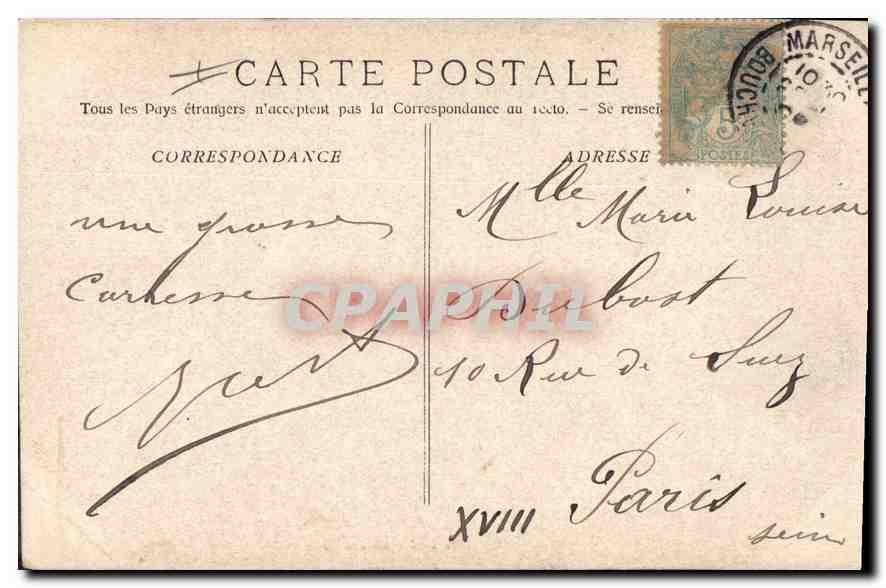 CARTE POSTALE
Tous les Pays étrangers n'acceptent pas la Correspondance au recto. - Se rensei
CORRESPONDANCE
ADRESSE
5
POSTES
MARSEILLE
BOUCH
10
une grosse
Caresse
Mlle Marie Louise
Dubost
10 Rue de Suez
XVIII Paris
Seine
CPAPHIL